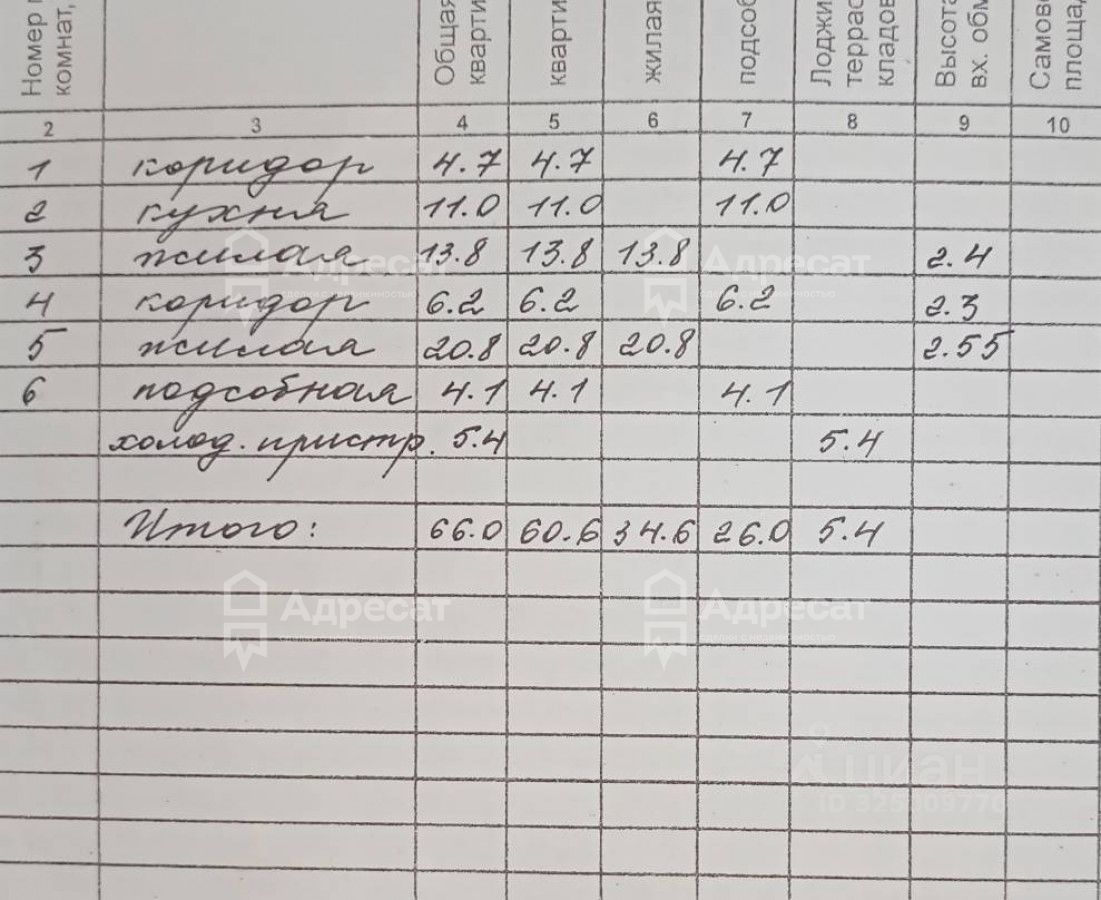 Номер
комнат,
Общая
кварти
кварти
жилая
подсоб
Лоджи
террас
кладов
Высота
вх. обм
Самово
площад
2 3 4 5 6 7 8 9 10
1 коридор 4.7 4.7 4.7
2 кухня 11.0 11.0 11.0
3 жилая 13.8 13.8 13.8 2.4
4 коридор 6.2 6.2 6.2 2.3
5 жилая 20.8 20.8 20.8 2.55
6 подсобная 4.1 4.1 4.1
холод. пристр. 5.4 5.4
Итого: 66.0 60.6 34.6 26.0 5.4
Адресат Адресат
сделки с недвижимостью сделки с недвижимостью
Адресат Адресат
сделки с недвижимостью сделки с недвижимостью
циан